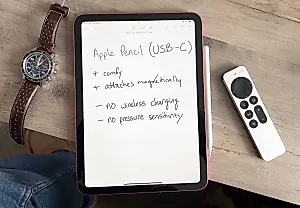 Apple Pencil (USB-C)
+ comfy
+ attaches magnetically
- no wireless charging
- no pressure sensitivity